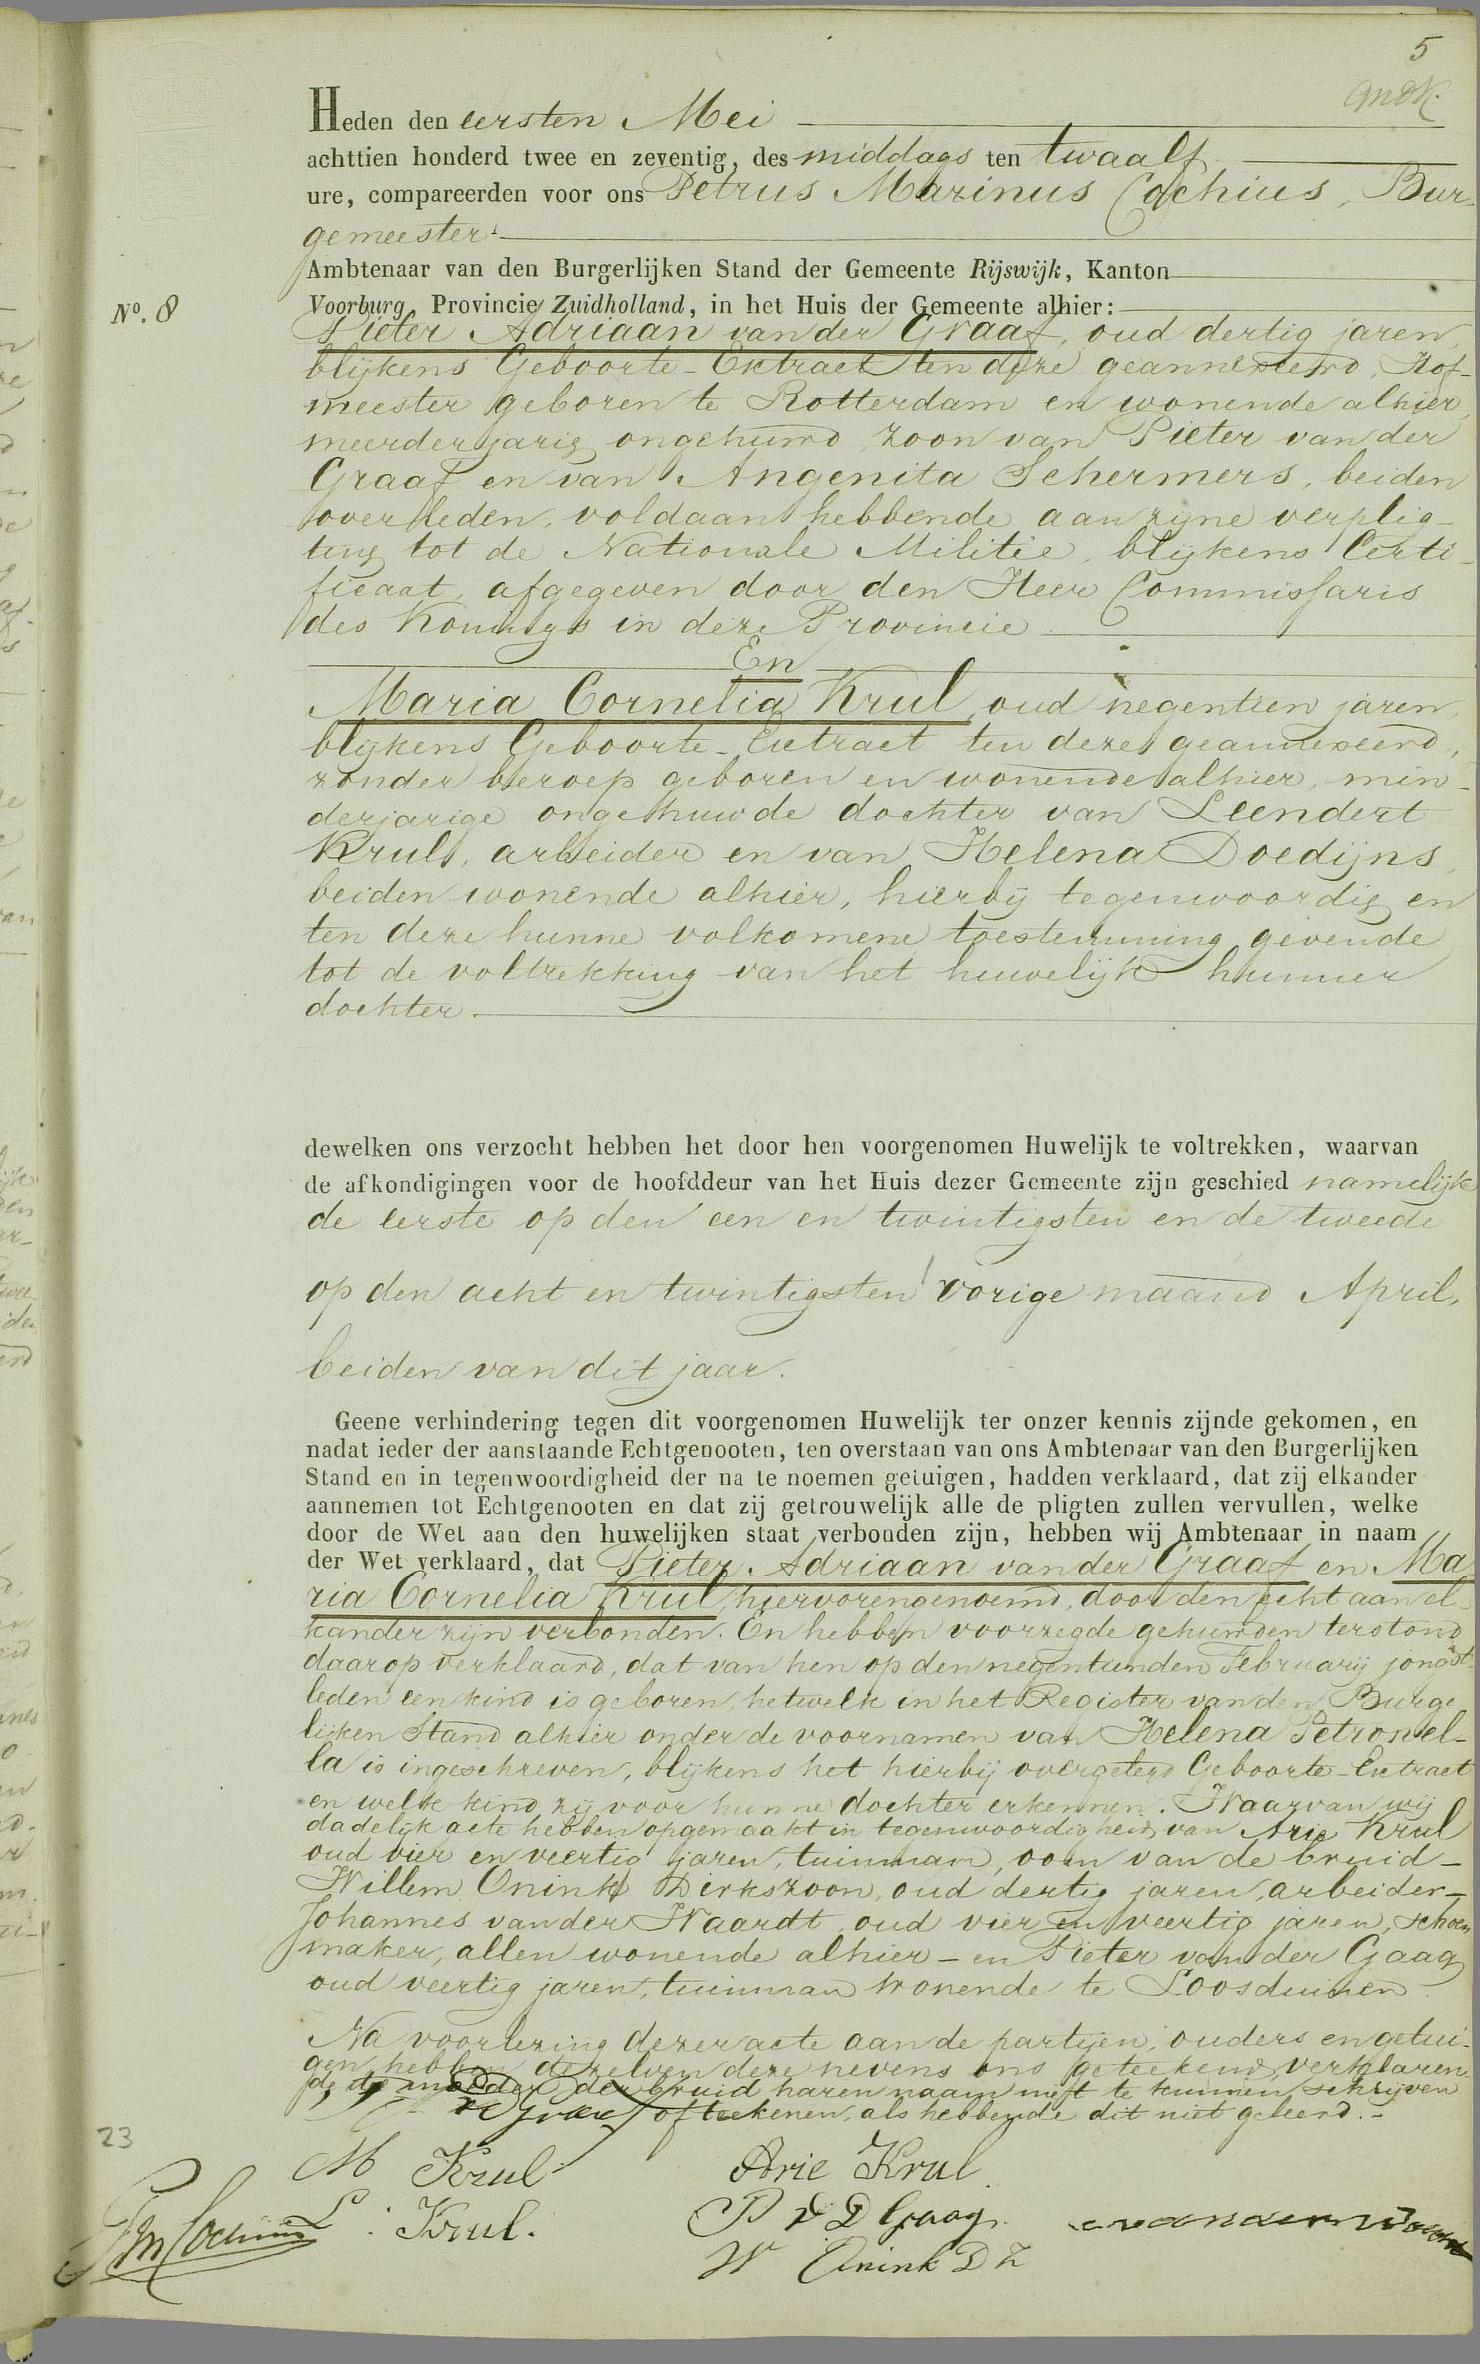 5
Heden den eersten Mei
achttien honderd twee en zeventig, des middags ten twaalf
ure, compareerden voor ons Petrus Marinus Cochius, Bur-
gemeester
Ambtenaar van den Burgerlijken Stand der Gemeente Rijswijk, Kanton
No. 8
Voorburg, Provincie Zuidholland, in het Huis der Gemeente alhier:
Pieter Adriaan van der Graaf, oud dertig jaren,
blijkens Geboorte-Extract ten deze geannexeerd, Hof-
meester geboren te Rotterdam en wonende alhier,
meerderjarig ongehuwd, zoon van Pieter van der
Graaf en van Angenita Schermers, beiden
overleden, voldaan hebbende aan zijne verplig-
ting tot de Nationale Militie, blijkens Certi-
ficaat, afgegeven door den Heer Commissaris
des Konings in deze Provincie
En
Maria Cornelia Krul, oud negentien jaren,
blijkens Geboorte-Extract ten deze geannexeerd,
zonder beroep geboren en wonende alhier, min-
derjarige ongehuwde dochter van Leendert
Krul, arbeider en van Helena Doedijns,
beiden wonende alhier, hierbij tegenwoordig en
ten deze hunne volkomene toestemming gevende
tot de voltrekking van het huwelijk hunner
dochter.
dewelken ons verzocht hebben het door hen voorgenomen Huwelijk te voltrekken, waarvan
de afkondigingen voor de hoofddeur van het Huis dezer Gemeente zijn geschied namelijk
de eerste op den een en twintigsten en de tweede
op den acht en twintigsten vorige maand April,
beiden van dit jaar.
Geene verhindering tegen dit voorgenomen Huwelijk ter onzer kennis zijnde gekomen, en
nadat ieder der aanstaande Echtgenooten, ten overstaan van ons Ambtenaar van den Burgerlijken
Stand en in tegenwoordigheid der na te noemen getuigen, hadden verklaard, dat zij elkander
aannemen tot Echtgenooten en dat zij getrouwelijk alle de pligten zullen vervullen, welke
door de Wet aan den huwelijken staat verbonden zijn, hebben wij Ambtenaar in naam
der Wet verklaard, dat Pieter Adriaan van der Graaf en Ma
ria Cornelia Krul, hiervorengenoemd, door den echt aan el-
kander zijn verbonden. En hebben voorzegde gehuwden terstond
daarop verklaard, dat van hen op den negentienden Februarij jongst
leden een kind is geboren hetwelk in het Register van den Burge
lijken Stand alhier onder de voornamen van Helena Petronel-
la is ingeschreven, blijkens het hierbij overgelegd Geboorte-Extract
en welk kind zij voor hunne dochter erkennen. Waarvan wij
dadelijk acte hebben opgemaakt in tegenwoordigheid van Arie Krul
oud vier en veertig jaren, tuinman, oom van de bruid-
Willem Onink Dirkszoon, oud dertig jaren, arbeider-
Johannes van der Waardt, oud vier en veertig jaren, schoen
maker, allen wonende alhier - en Pieter van der Gaag
oud veertig jaren, tuinman wonende te Loosduinen.
Na voorlezing dezer acte aan de partijen, ouders en getui-
gen hebben dezelven deze nevens ons geteekend, verklaren
de de moeder der bruid haren naam niet te kunnen schrijven
of teekenen, als hebbende dit niet geleerd.-
23
M Krul
Arie Krul
L. Krul.
P v D Gaag.
W Onink D Z